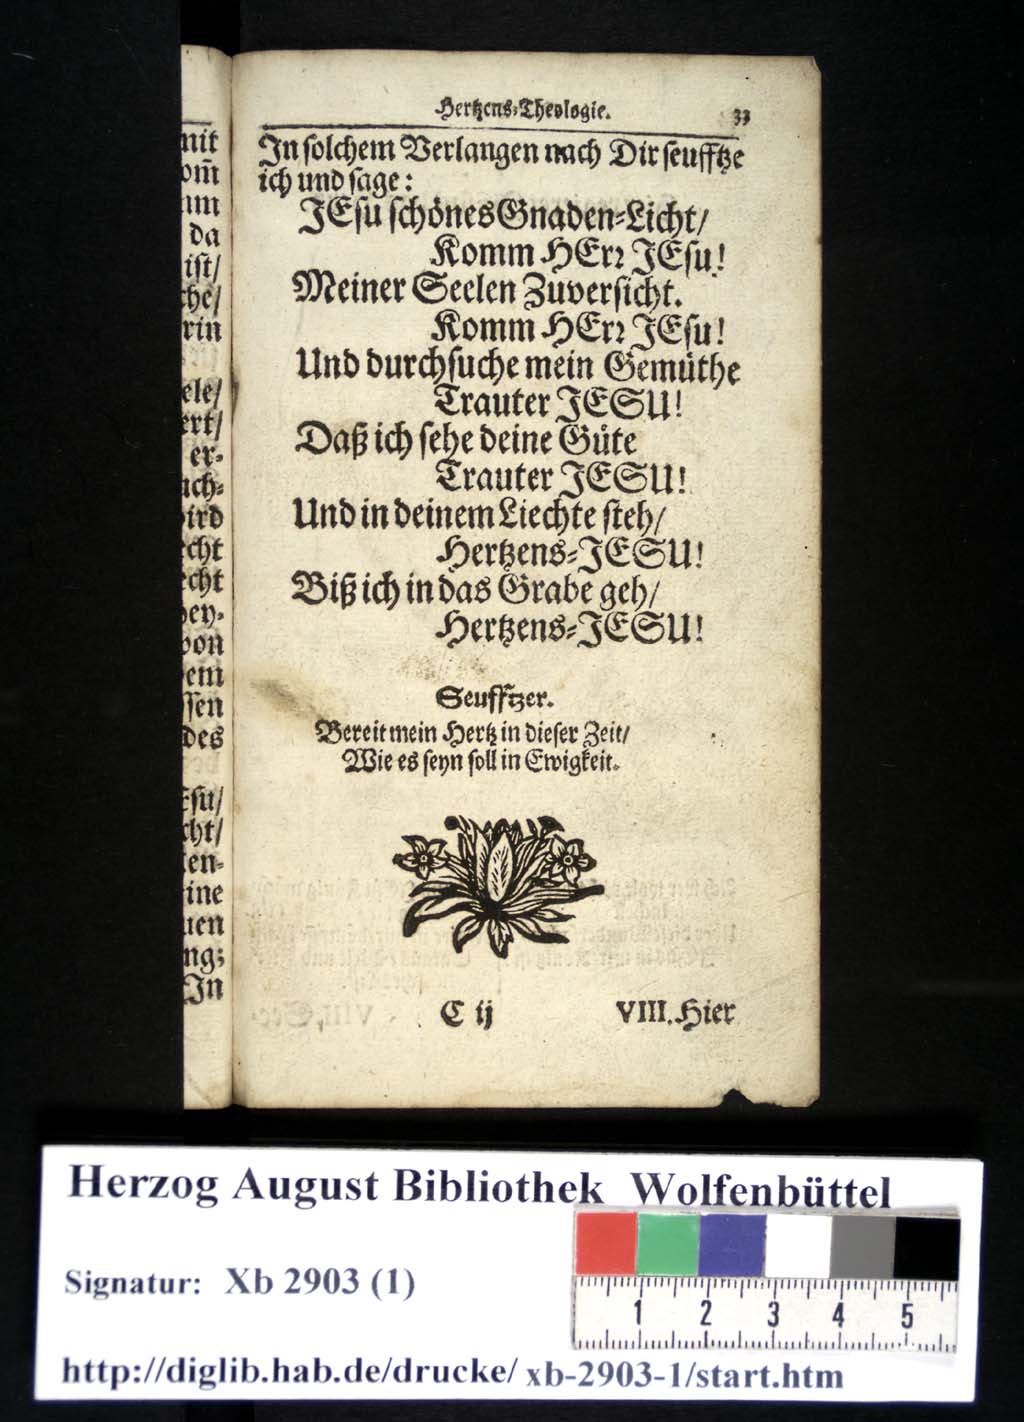 Hertzens-Theologie. 33
In solchem Verlangen nach Dir seufftze
ich und sage:
JEsu schönes Gnaden-Licht/
Komm HErr JEsu!
Meiner Seelen Zuversicht.
Komm HErr JEsu!
Und durchsuche mein Gemüthe
Trauter JESU!
Daß ich sehe deine Güte
Trauter JESU!
Und in deinem Liechte steh/
Hertzens-JESU!
Biß ich in das Grabe geh/
Hertzens-JESU!
Seufftzer.
Bereit mein Hertz in dieser Zeit/
Wie es seyn soll in Ewigkeit.
C ij VIII. Hier
Herzog August Bibliothek Wolfenbüttel
Signatur: Xb 2903 (1)
1 2 3 4 5
http://diglib.hab.de/drucke/ xb-2903-1/start.htm